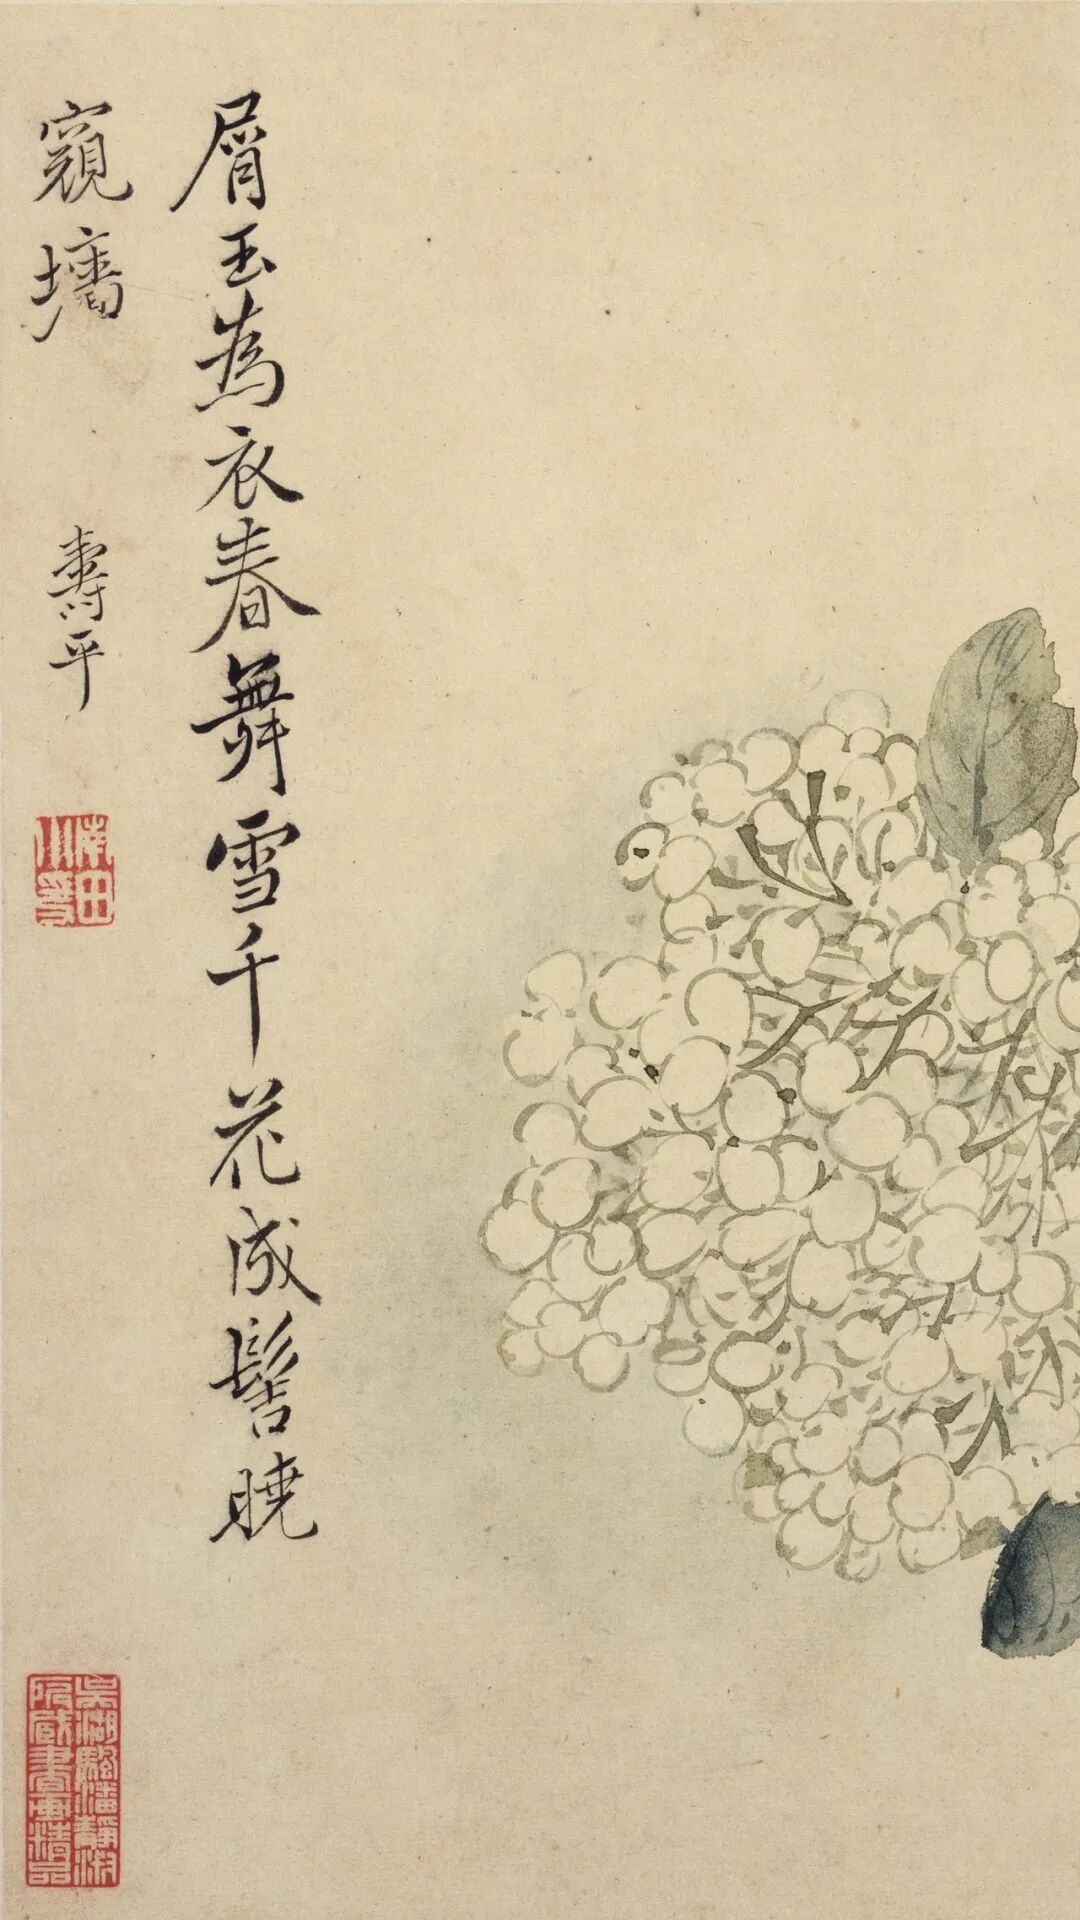 屑玉為衣春舞雪千花成髻曉
窺墻
壽平
南田小筆
吳湖騆潘靜淑
所藏書畫精品